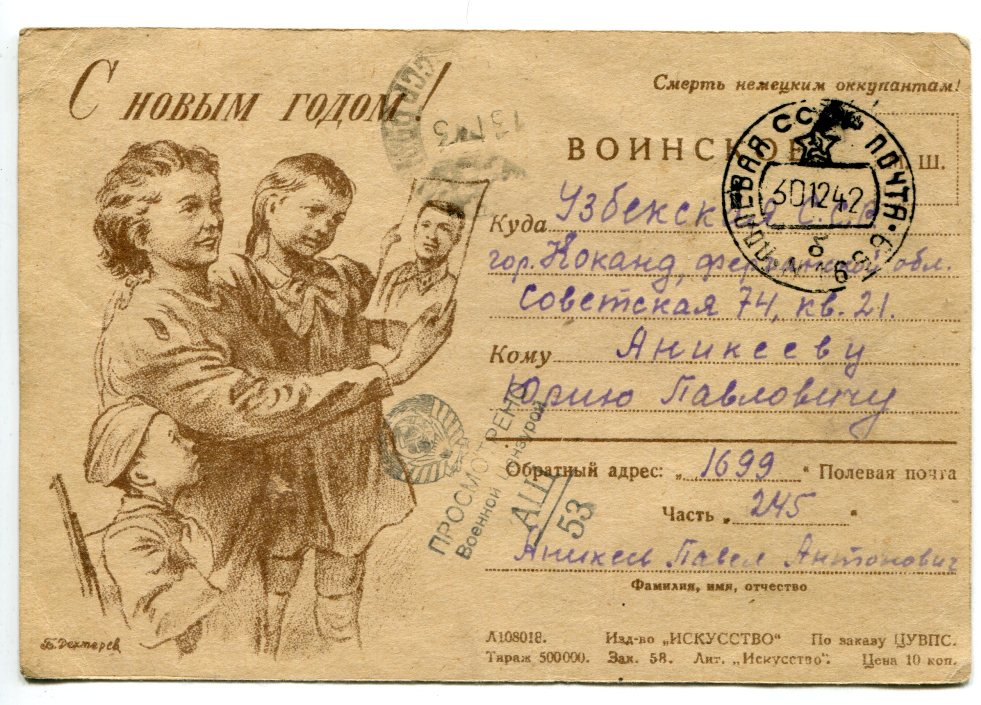 С новым годом!
Смерть немецким оккупантам!
ВОИНСКОЕ
Ш.
ПОЛЕВАЯ СССР ПОЧТА
30 12 42
б
Куда Узбекская С.С.Р.
гор. Коканд, ферганской обл.
Советская 74, кв. 21.
Кому Аникееву
Юрию Павловичу
ПРОСМОТРЕНО
Военной Цензурой
53
Обратный адрес: „ 1699 “ Полевая почта
Часть „ 245 “
Аникеев Павел Антонович
Фамилия, имя, отчество
Б. Дехтерев
А108018. Изд-во „ИСКУССТВО“ По заказу ЦУВПС.
Тираж 500000. Зак. 58. Лит. „Искусство“. Цена 10 коп.